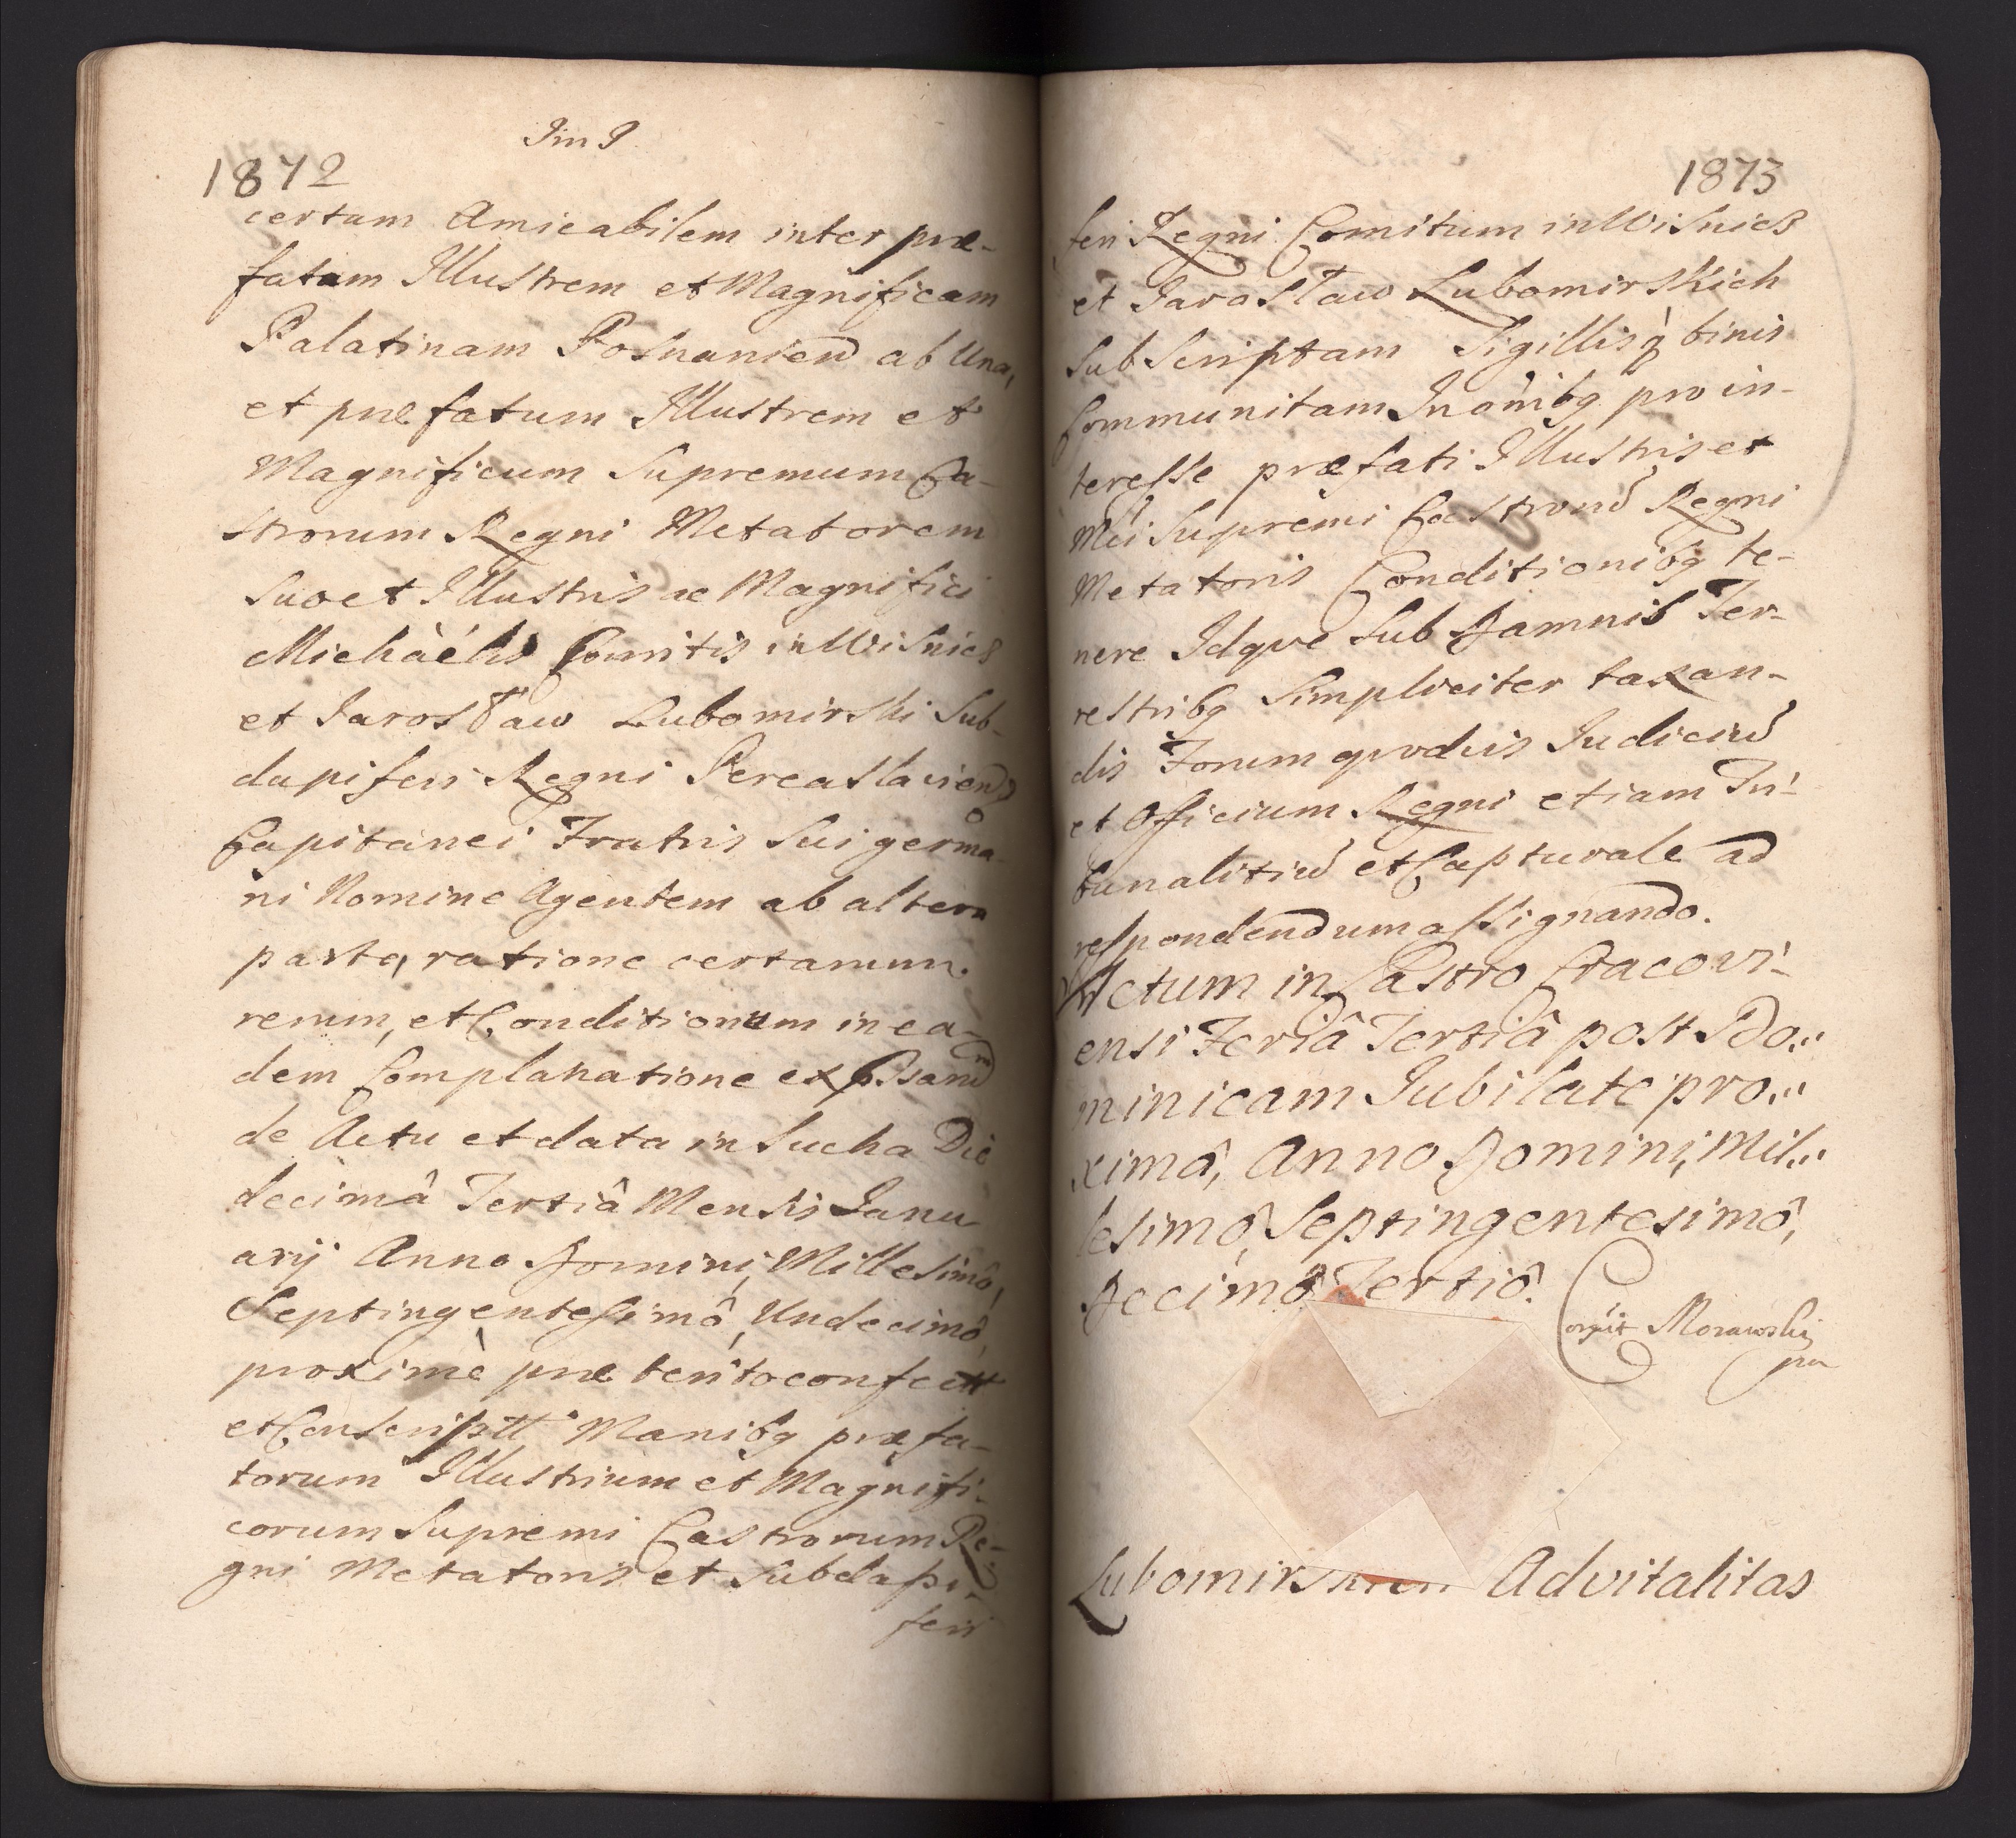 Jm J
1872
certam Amicabilem inter præ-
fatam Illustrem et Magnificam
Palatinam Posnanien ab Una,
et præfatum Illustrem et
Magnificum Supremum Ca-
strorum Regni Metatorem
Suo et Illustris ac Magnifici
Michàélis Comitis in Wisnicz
et Jarosław Lubomirski Sub-
dapiferi Regni Pereaslavien
Capitanei Fratris Sui germa-
ni Nomine Agentem ab altera
parte, ratione certarum
rerum, et Conditionum in ea-
dem Complanatione
de Actu et data in Sucha Die
decimâ Tertiâ Mensis Janu
arij Anno Domini, Millesimô,
Septingentesimô, Undecimô,
proximè præteritoconfectt
et Conscriptt Manibq præfa-
torum Illustrium et Magnifi-
corum Supremi Castrorum Re-
gni Metatoris et Subdapi-
feri
1873
feri Regni Comitum in Wisnicz
et Jarosław Lubomirskich
Subscriptam Sigillisq binis
Communitam In omibq pro in-
teresse præfati Illustris et
Mci Supremi Castrorum Regni
Metatoris Conditionibq te-
nere Idque Sub Damnis Ter-
restribq Simpliciter taxan-
dis Forum quodvis Judiciu
et Officium Regni etiam Tri-
bunalitiu et Capturale ad
respondendum assignando.
Actum in Castro Cracovi-
ensi Feriâ Tertiâ post Do...
minicam Jubilate pro...
ximâ, Anno Domini, Mil...
lesimô, Septingentesimô,
Decimô Tertiô.
Corrit Morawski
Lubomirskich Advitalitas